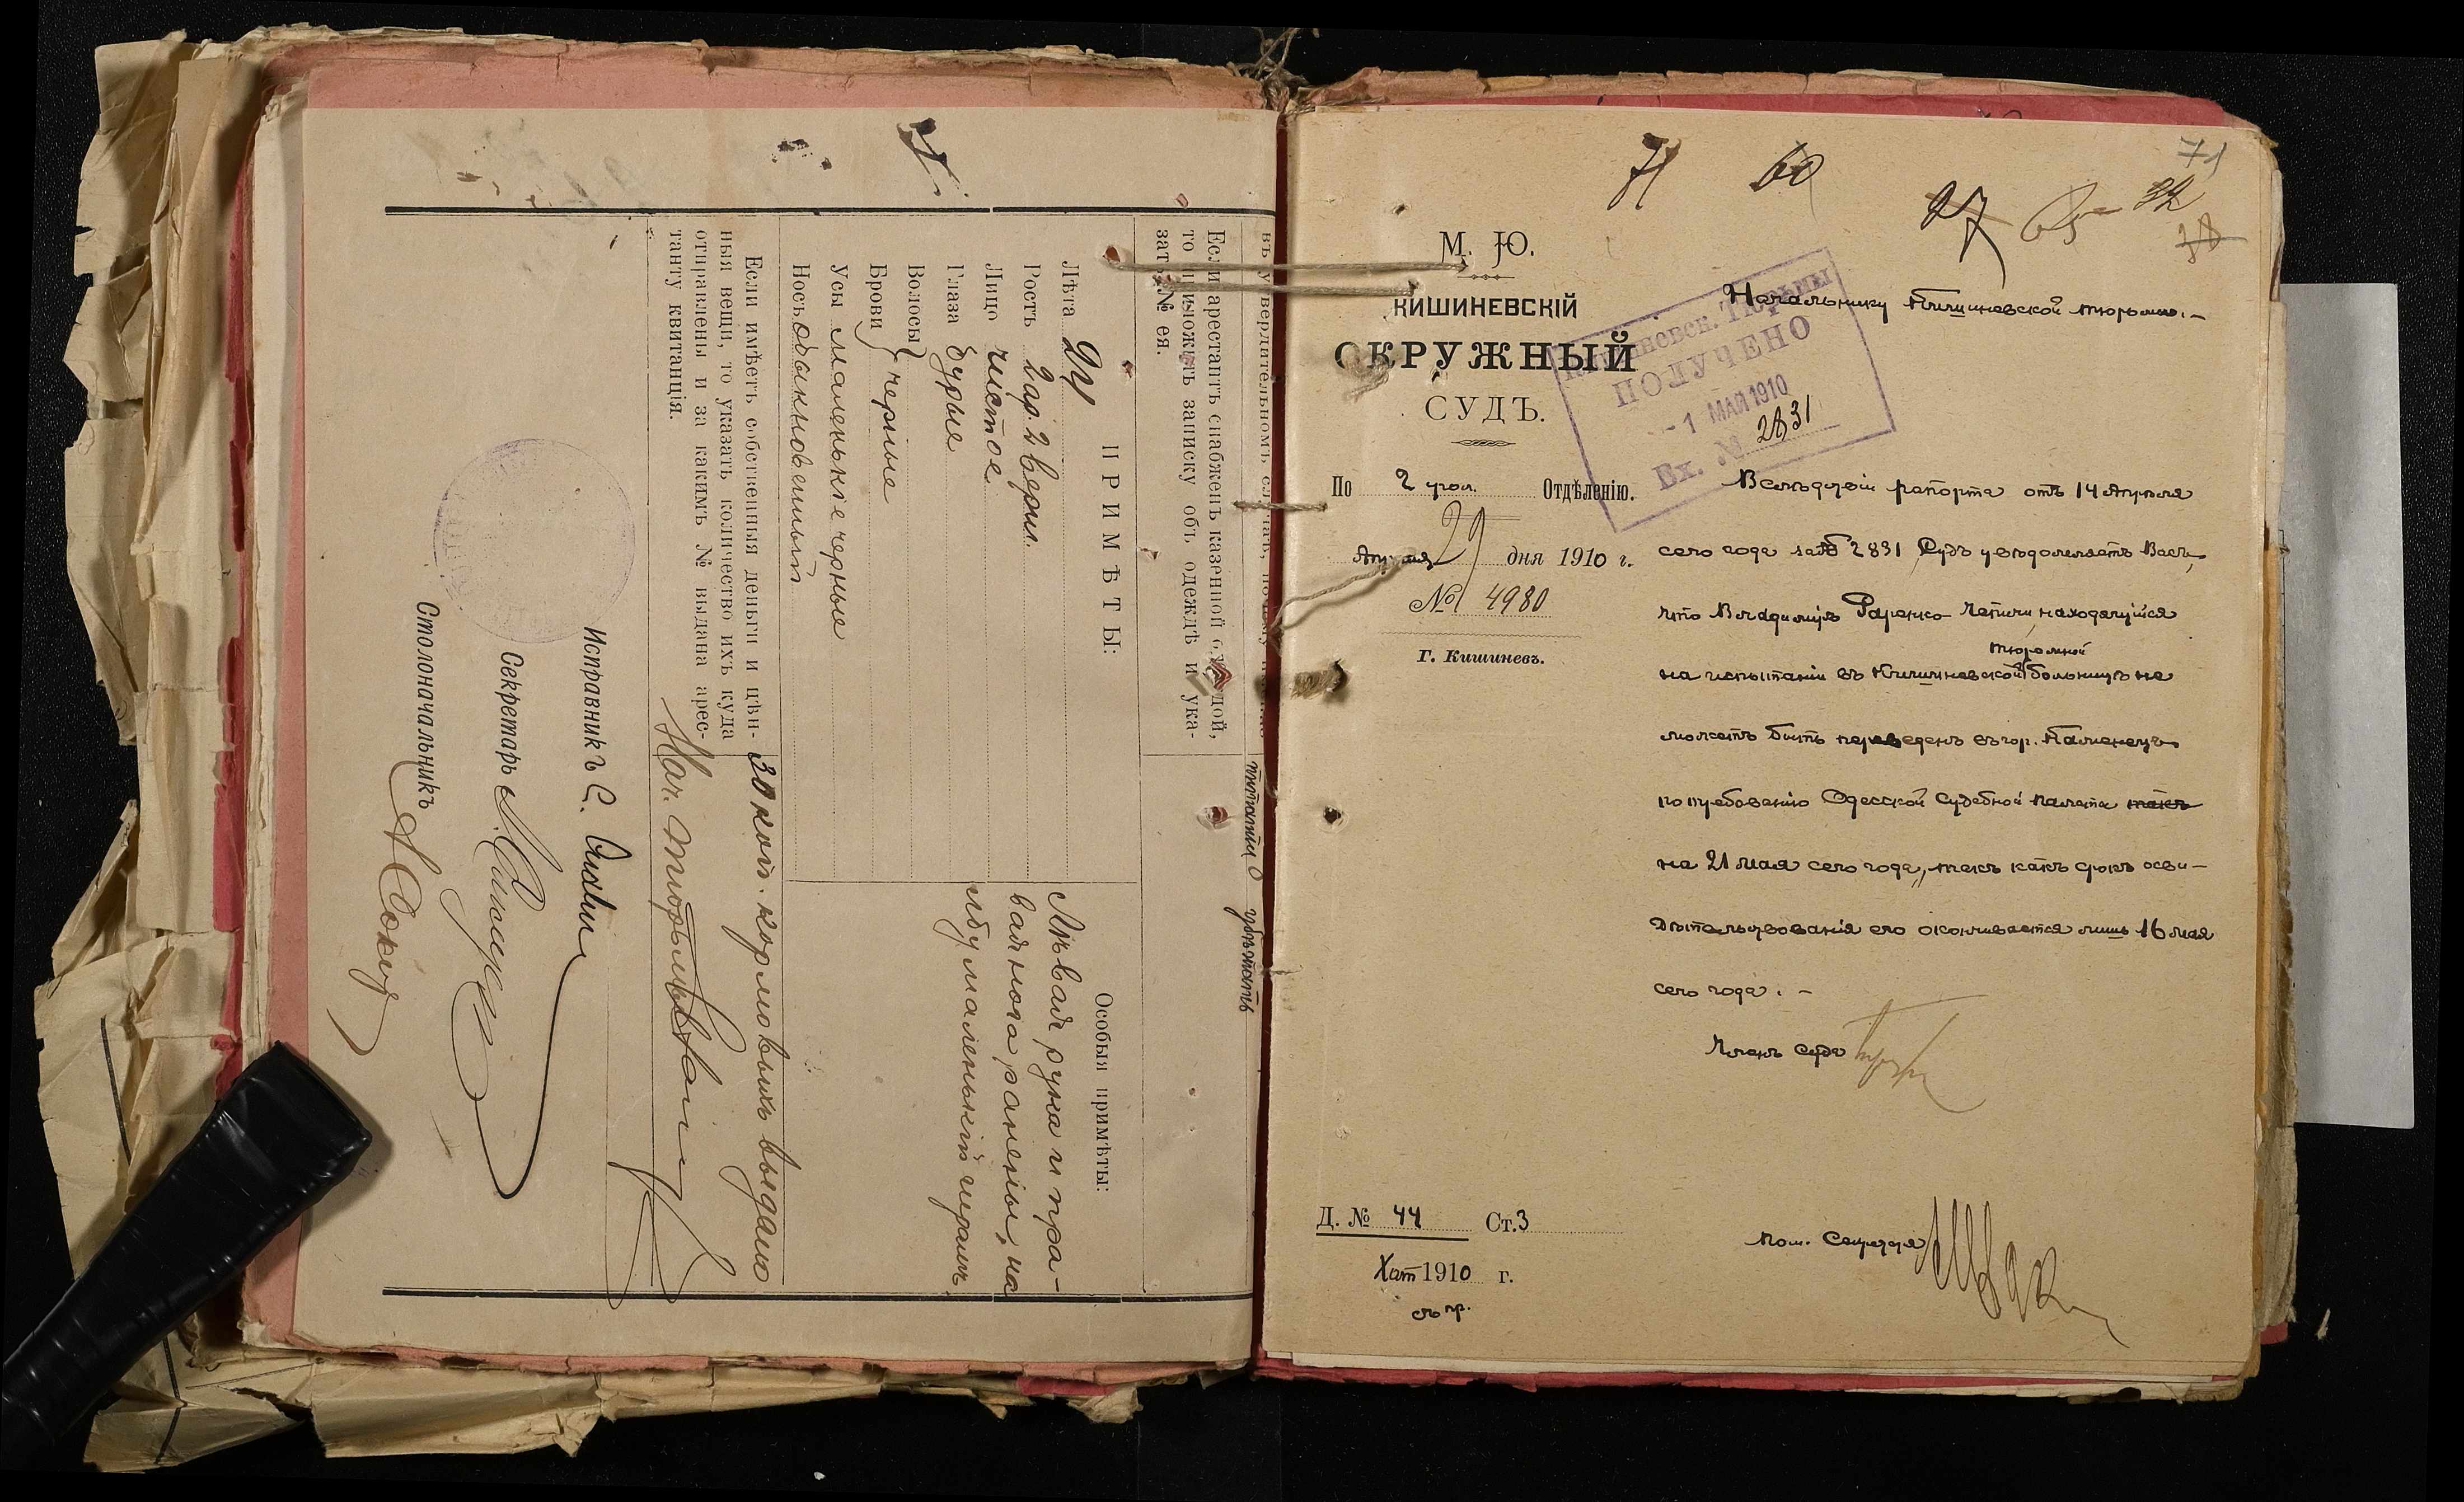 въ утвердительномъ случаѣ, почему
пытатии убѣжать
Если арестантъ снабженъ казенной одеждой,
то приложить записку объ одеждѣ и ука-
зать № ея.
ПРИМѢТЫ:
Особыя примѣты:
Лѣта 24
Ростъ 2 ар. 2 верш.
Лицо чистое
Глаза бурые
Волосы } черные
Брови
Усы маленькіе черные
Носъ обыкновенный
Лѣвая рука и пра-
вая нога ранены, на
лбу маленькій шрамъ
Если имѣетъ собственныя деньги и цѣн-
ныя вещи, то указать количество ихъ куда
отправлены и за какимъ № выдана арес-
танту квитанція.
30 коп. кормовыхъ выдано
Нач. тюрьмы
Исправникъ С.
Секретарь
Столоначальникъ
71 60 27 65 32
71
М. Ю.
КИШИНЕВСКІЙ
ОКРУЖНЫЙ
СУДЪ.
По 2 угол. Отдѣленію.
Апрѣля 29 дня 1910 г.
№ 4980
Г. Кишиневъ.
Кишиневск. Тюрьмы
ПОЛУЧЕНО
- 1 МАЙ 1910
Вх. № 2831
Начальнику Кишиневской тюрьмы. –
Вслѣдствіи рапорта отъ 14 Апрѣля
сего года за № 2831 Судъ увѣдомляетъ Васъ,
что Владиміръ находящійся
на испытаніи въ Кишиневской тюремной больницѣ не
можетъ быть переведенъ въ гор. Каменецъ
по требованію Одесской Судебной палаты такъ
на 21 мая сего года, такъ какъ срокъ осви-
дѣтельствованія его оканчивается лишь 16 мая
сего года. –
Членъ Суда
Пом. Секретаря
Д. № 44 Ст. 3
1910 г.